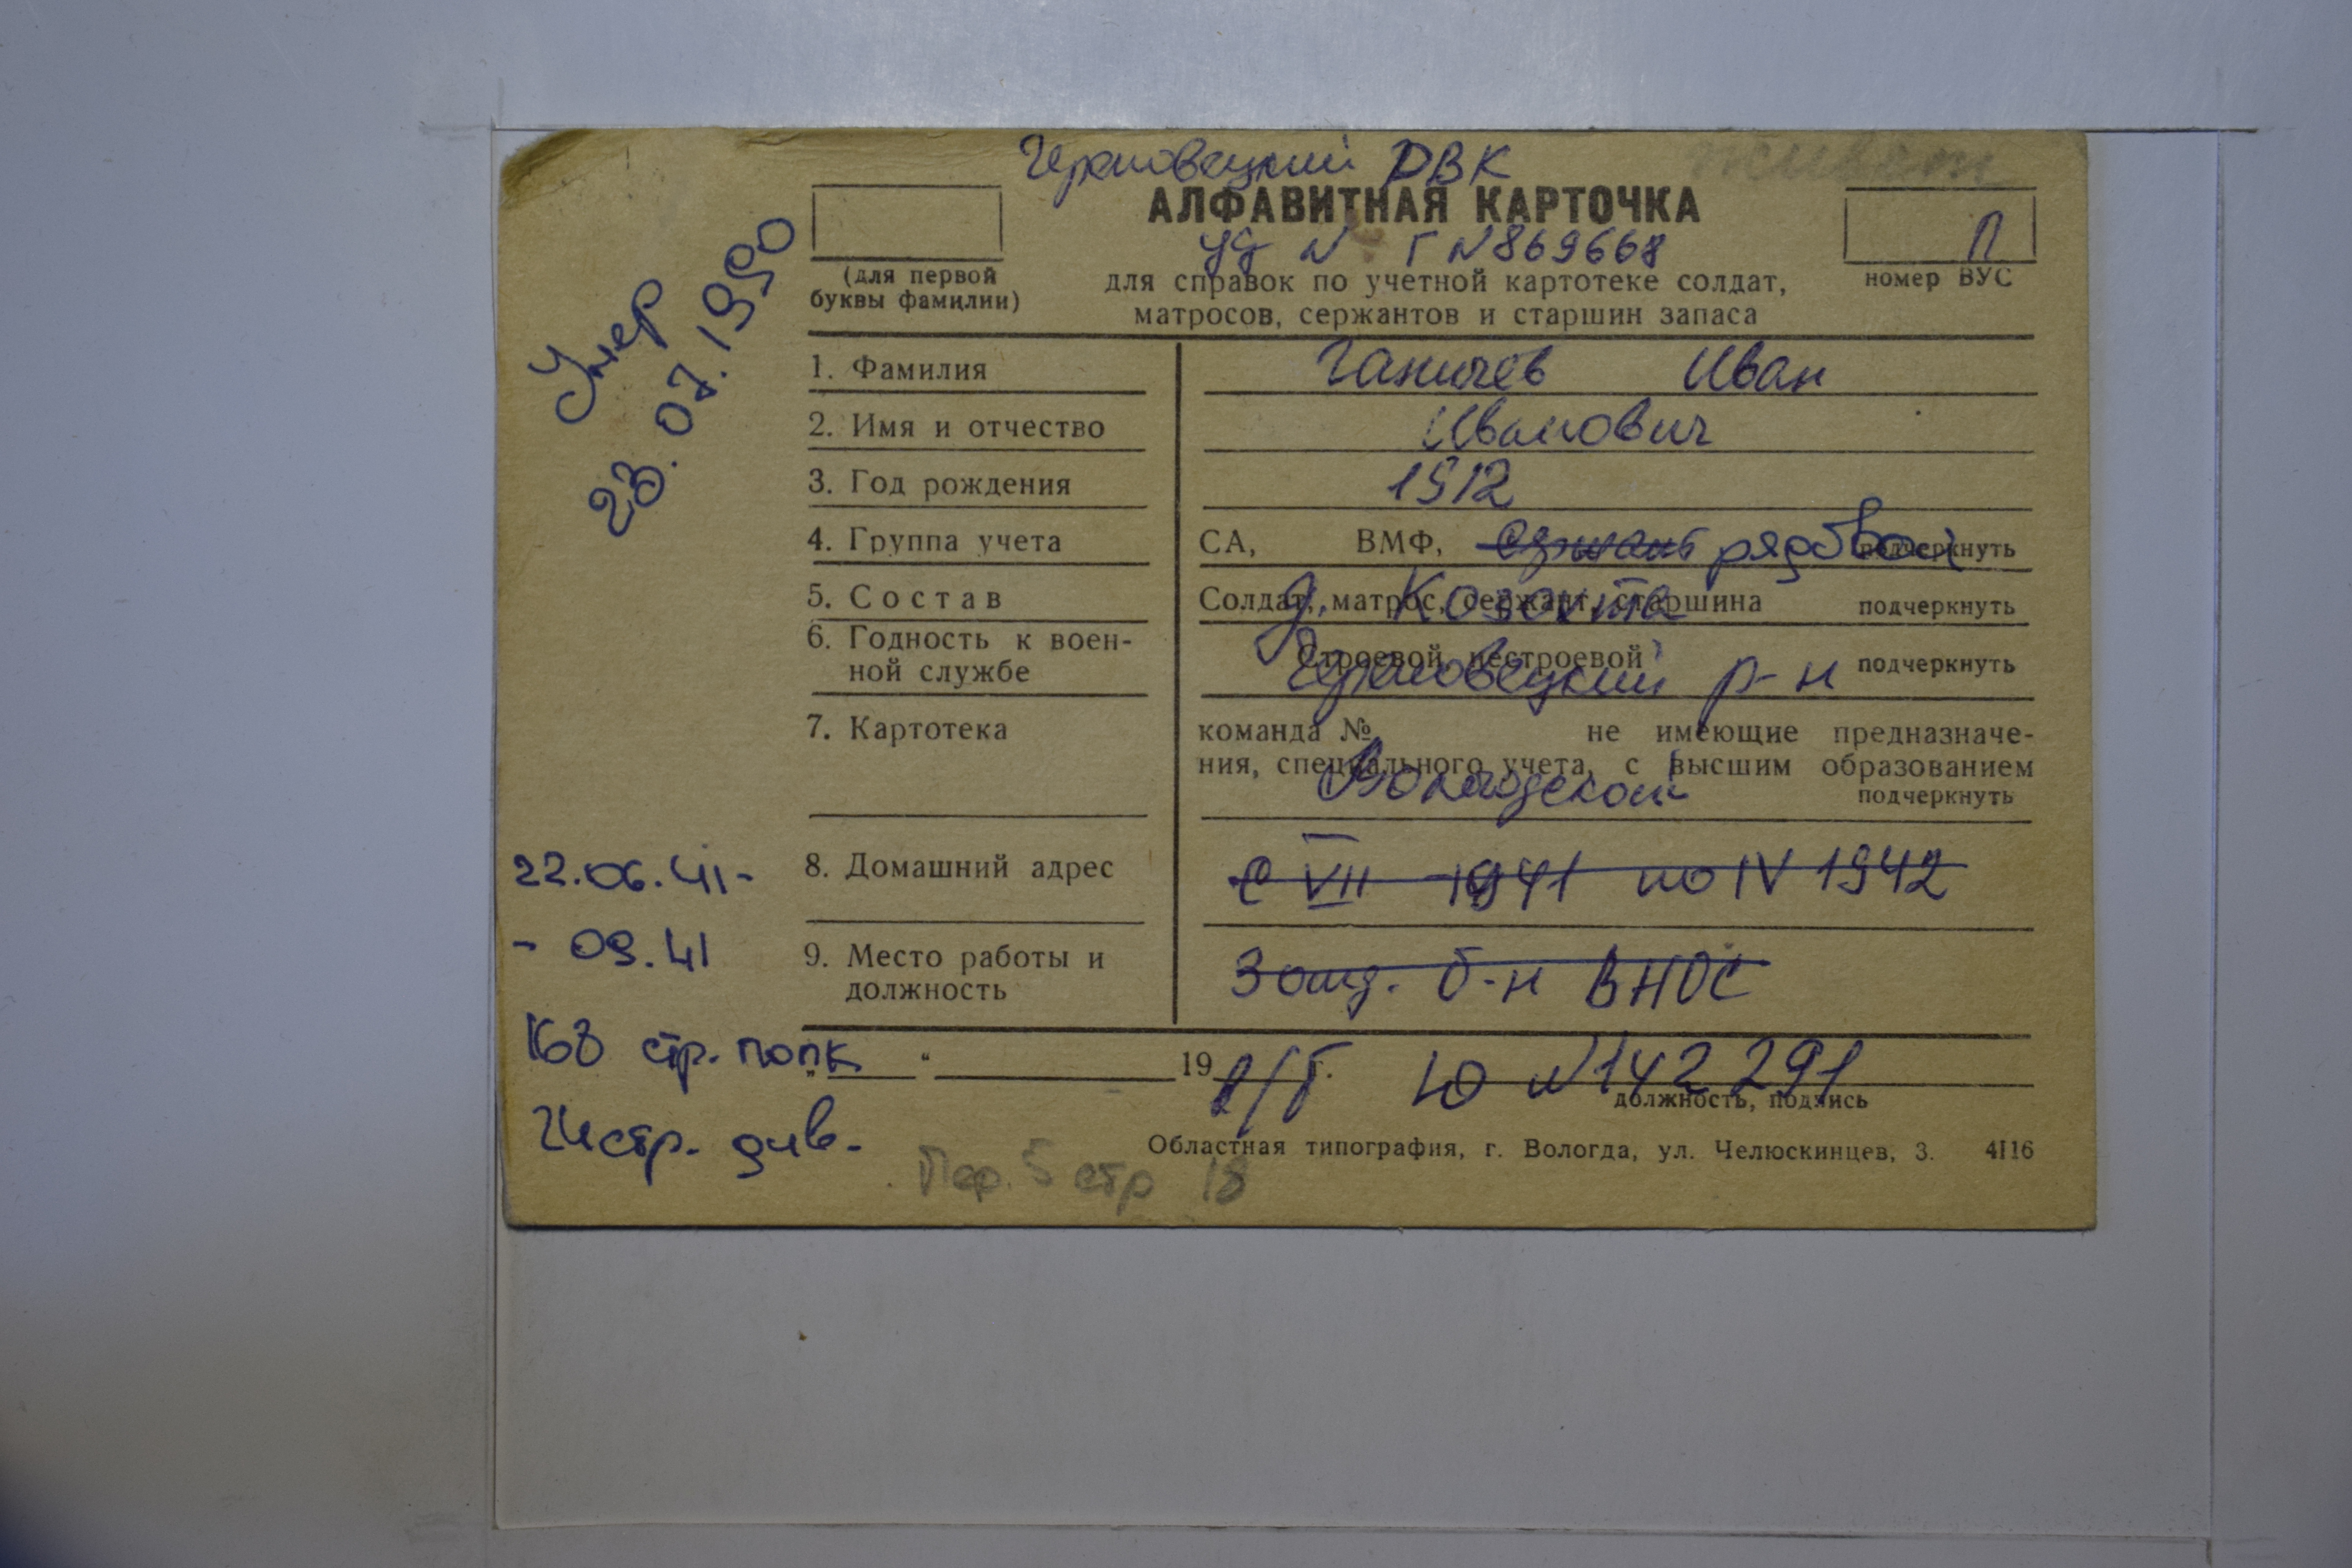 Череповецкий РВК
АЛФАВИТНАЯ КАРТОЧКА
П
уд N Г N 869668
(для первой
буквы фамилии)
для справок по учетной картотеке солдат,
матросов, сержантов и старшин запаса
номер ВУС
Умер
23.07.1990
1. Фамилия Ганичев Иван
2. Имя и отчество Иванович
3. Год рождения 1912
4. Группа учета СА, ВМФ, сержант рядовой подчеркнуть
5. Состав Солдат, матрос, сержант, старшина подчеркнуть
д.
6. Годность к воен-
ной службе Строевой, нестроевой подчеркнуть
Череповецкий р-н
7. Картотека команда № не имеющие предназначе-
ния, специального учета, с высшим образованием
подчеркнуть
Вологодской
8. Домашний адрес С VII 1941 по IV 1942
22.06.41-
- 09.41
9. Место работы и
должность 3 отд. б-н ВНОС
168 стр. полк
„ “ 19 г. в/б Ю N 142 291
должность, подпись
24 стр. див.
Областная типография, г. Вологда, ул. Челюскинцев, 3. 4116
Пер. 5 стр 18